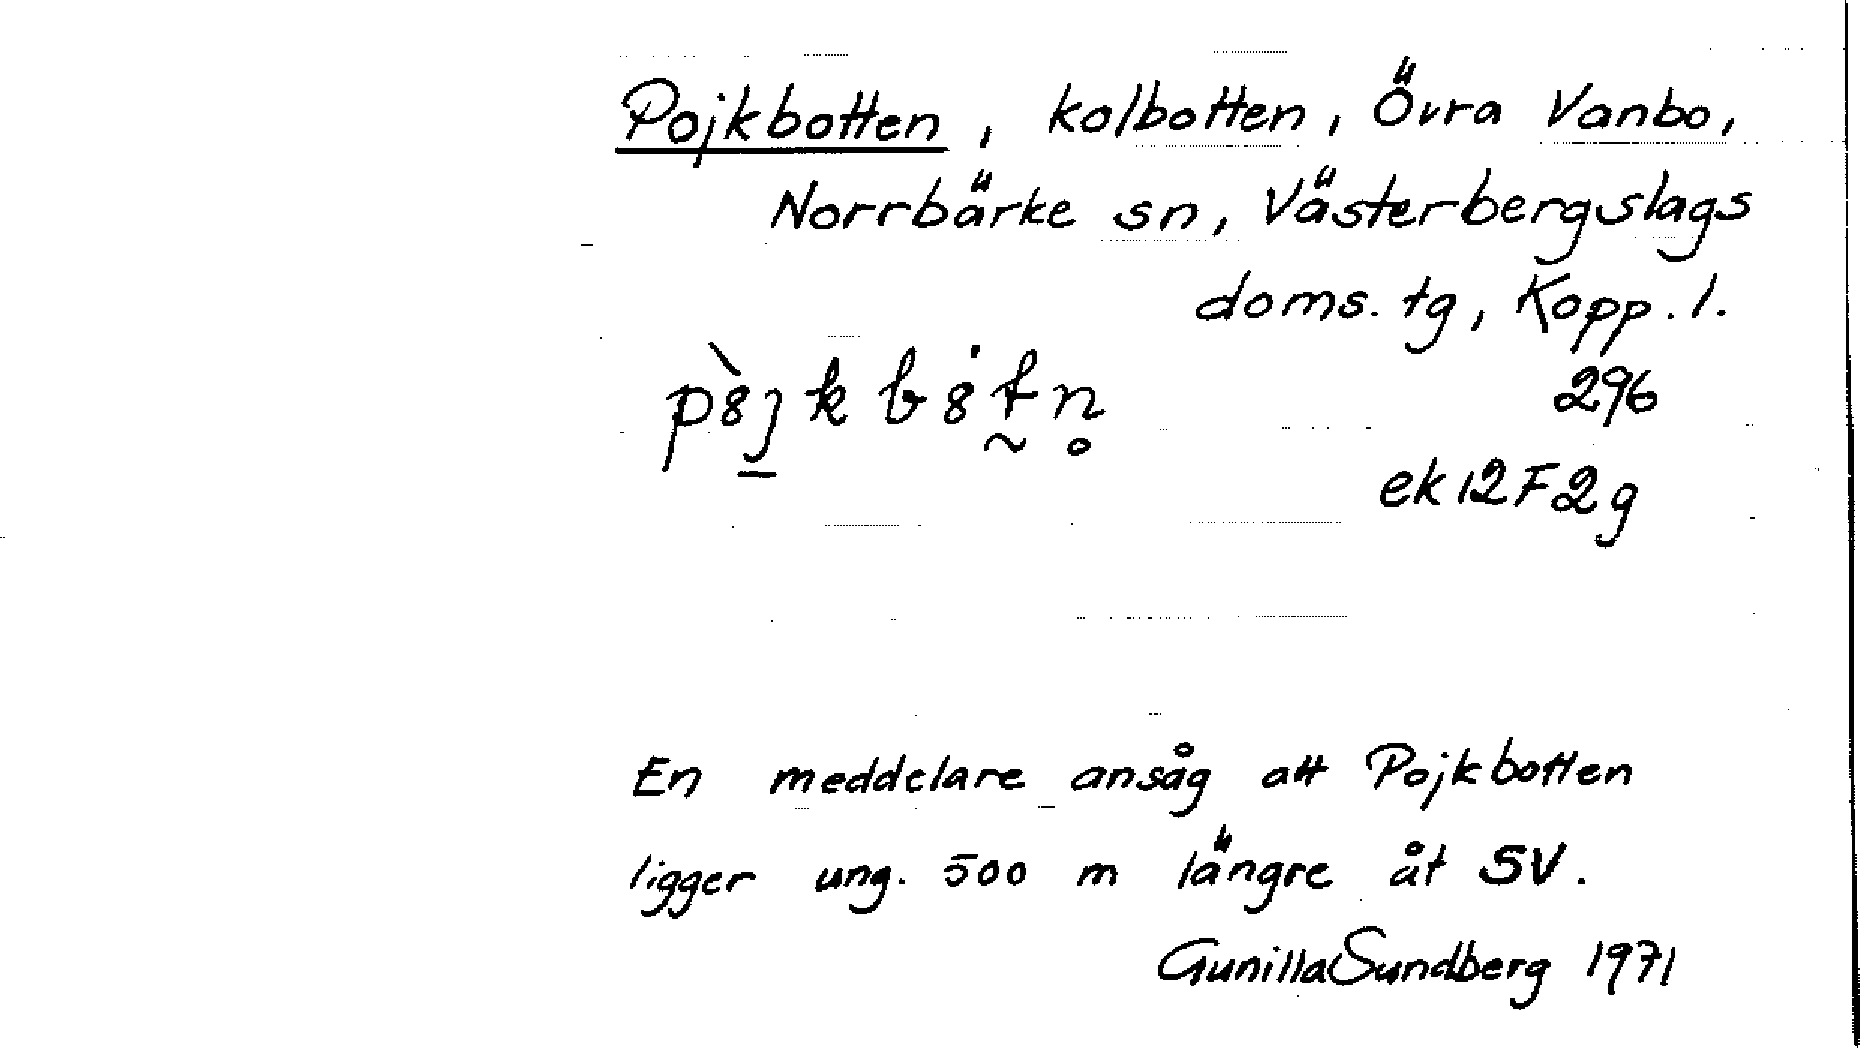 Pojkbotten, kolbotten, Övra Vanbo,
Norrbärke sn, Västerbergslags
doms. tg, Kopp. l.
296
ek 12F2g
En meddelare ansåg att Pojkbotten
ligger ung. 500 m längre åt SV.
Gunilla Sundberg 1971